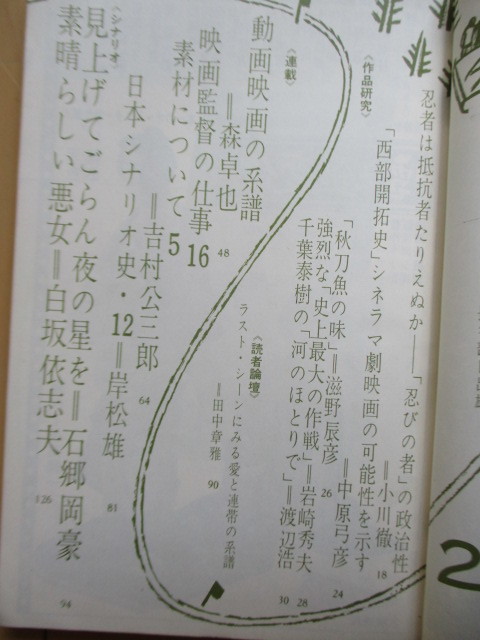 非
非
非
忍者は抵抗者たりえぬか——「忍びの者」の政治性
‖小川徹 18
〈作品研究〉
「西部開拓史」シネラマ劇映画の可能性を示す
‖中原弓彦 24
「秋刀魚の味」‖滋野辰彦 26
強烈な「史上最大の作戦」‖岩崎秀夫 28
千葉泰樹の「河のほとりで」‖渡辺浩 30
〈読者論壇〉
ラスト・シーンにみる愛と連帯の系譜
‖田中章雅 90
〈連載〉
動画映画の系譜 16
‖森卓也 48
映画監督の仕事 5
素材について
‖吉村公三郎 64
日本シナリオ史・12‖岸松雄 81
〈シナリオ〉
見上げてごらん夜の星を‖石郷岡豪 94
素晴らしい悪女‖白坂依志夫 126
2